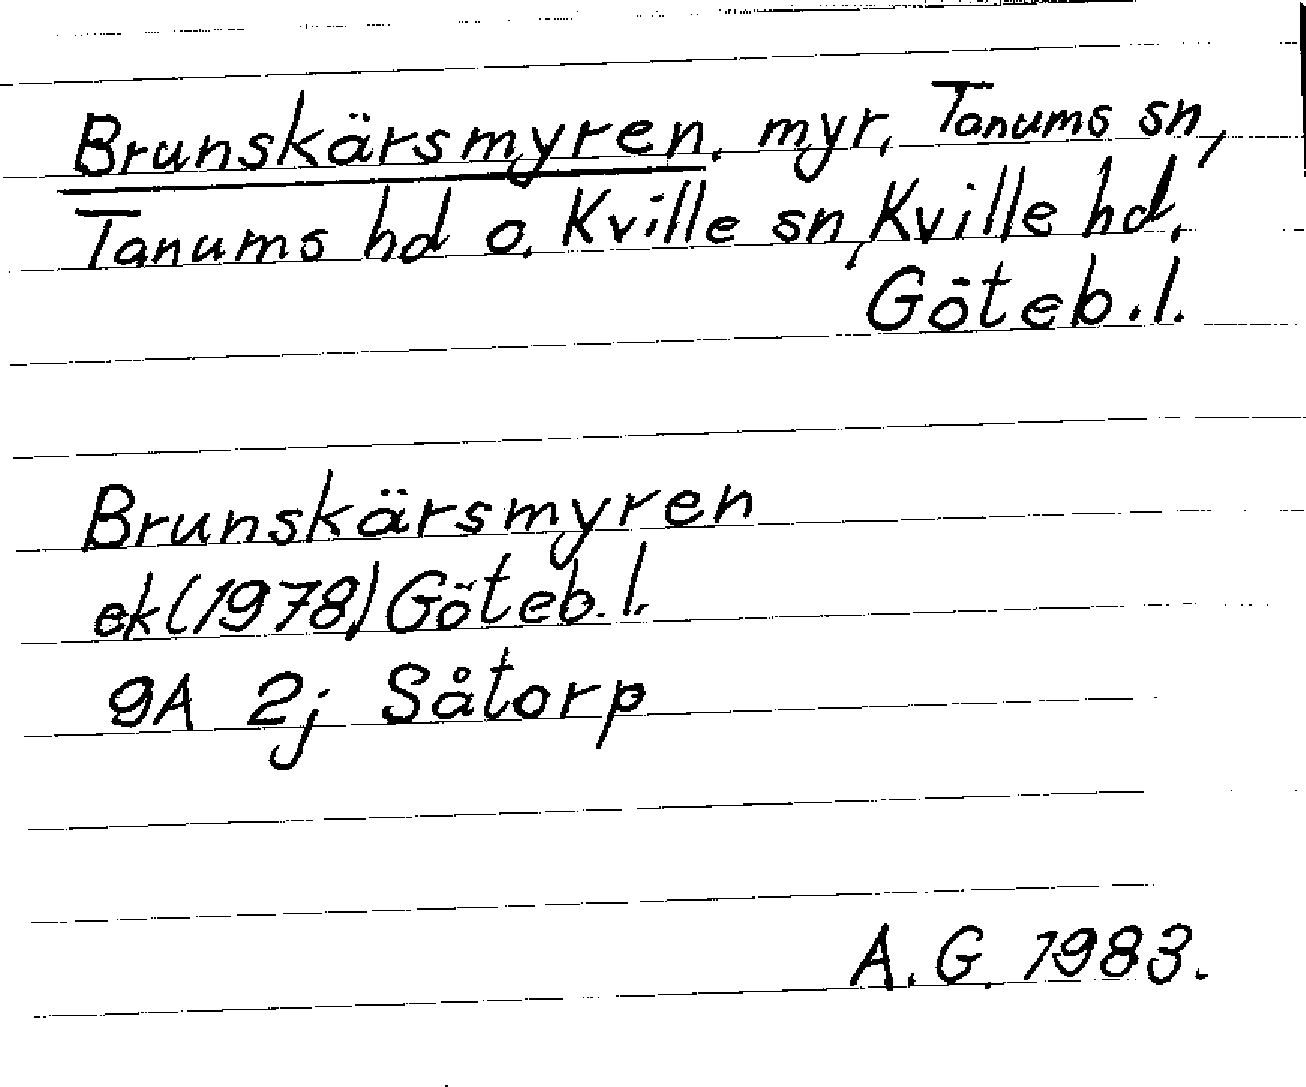 Brunskärsmyren, myr, Tanums sn,
Tanums hd o. Kville sn, Kville hd,
Göteb. l.
Brunskärsmyren
ek (1978) Göteb. l.
9A 2j Såtorp
A. G. 1983.